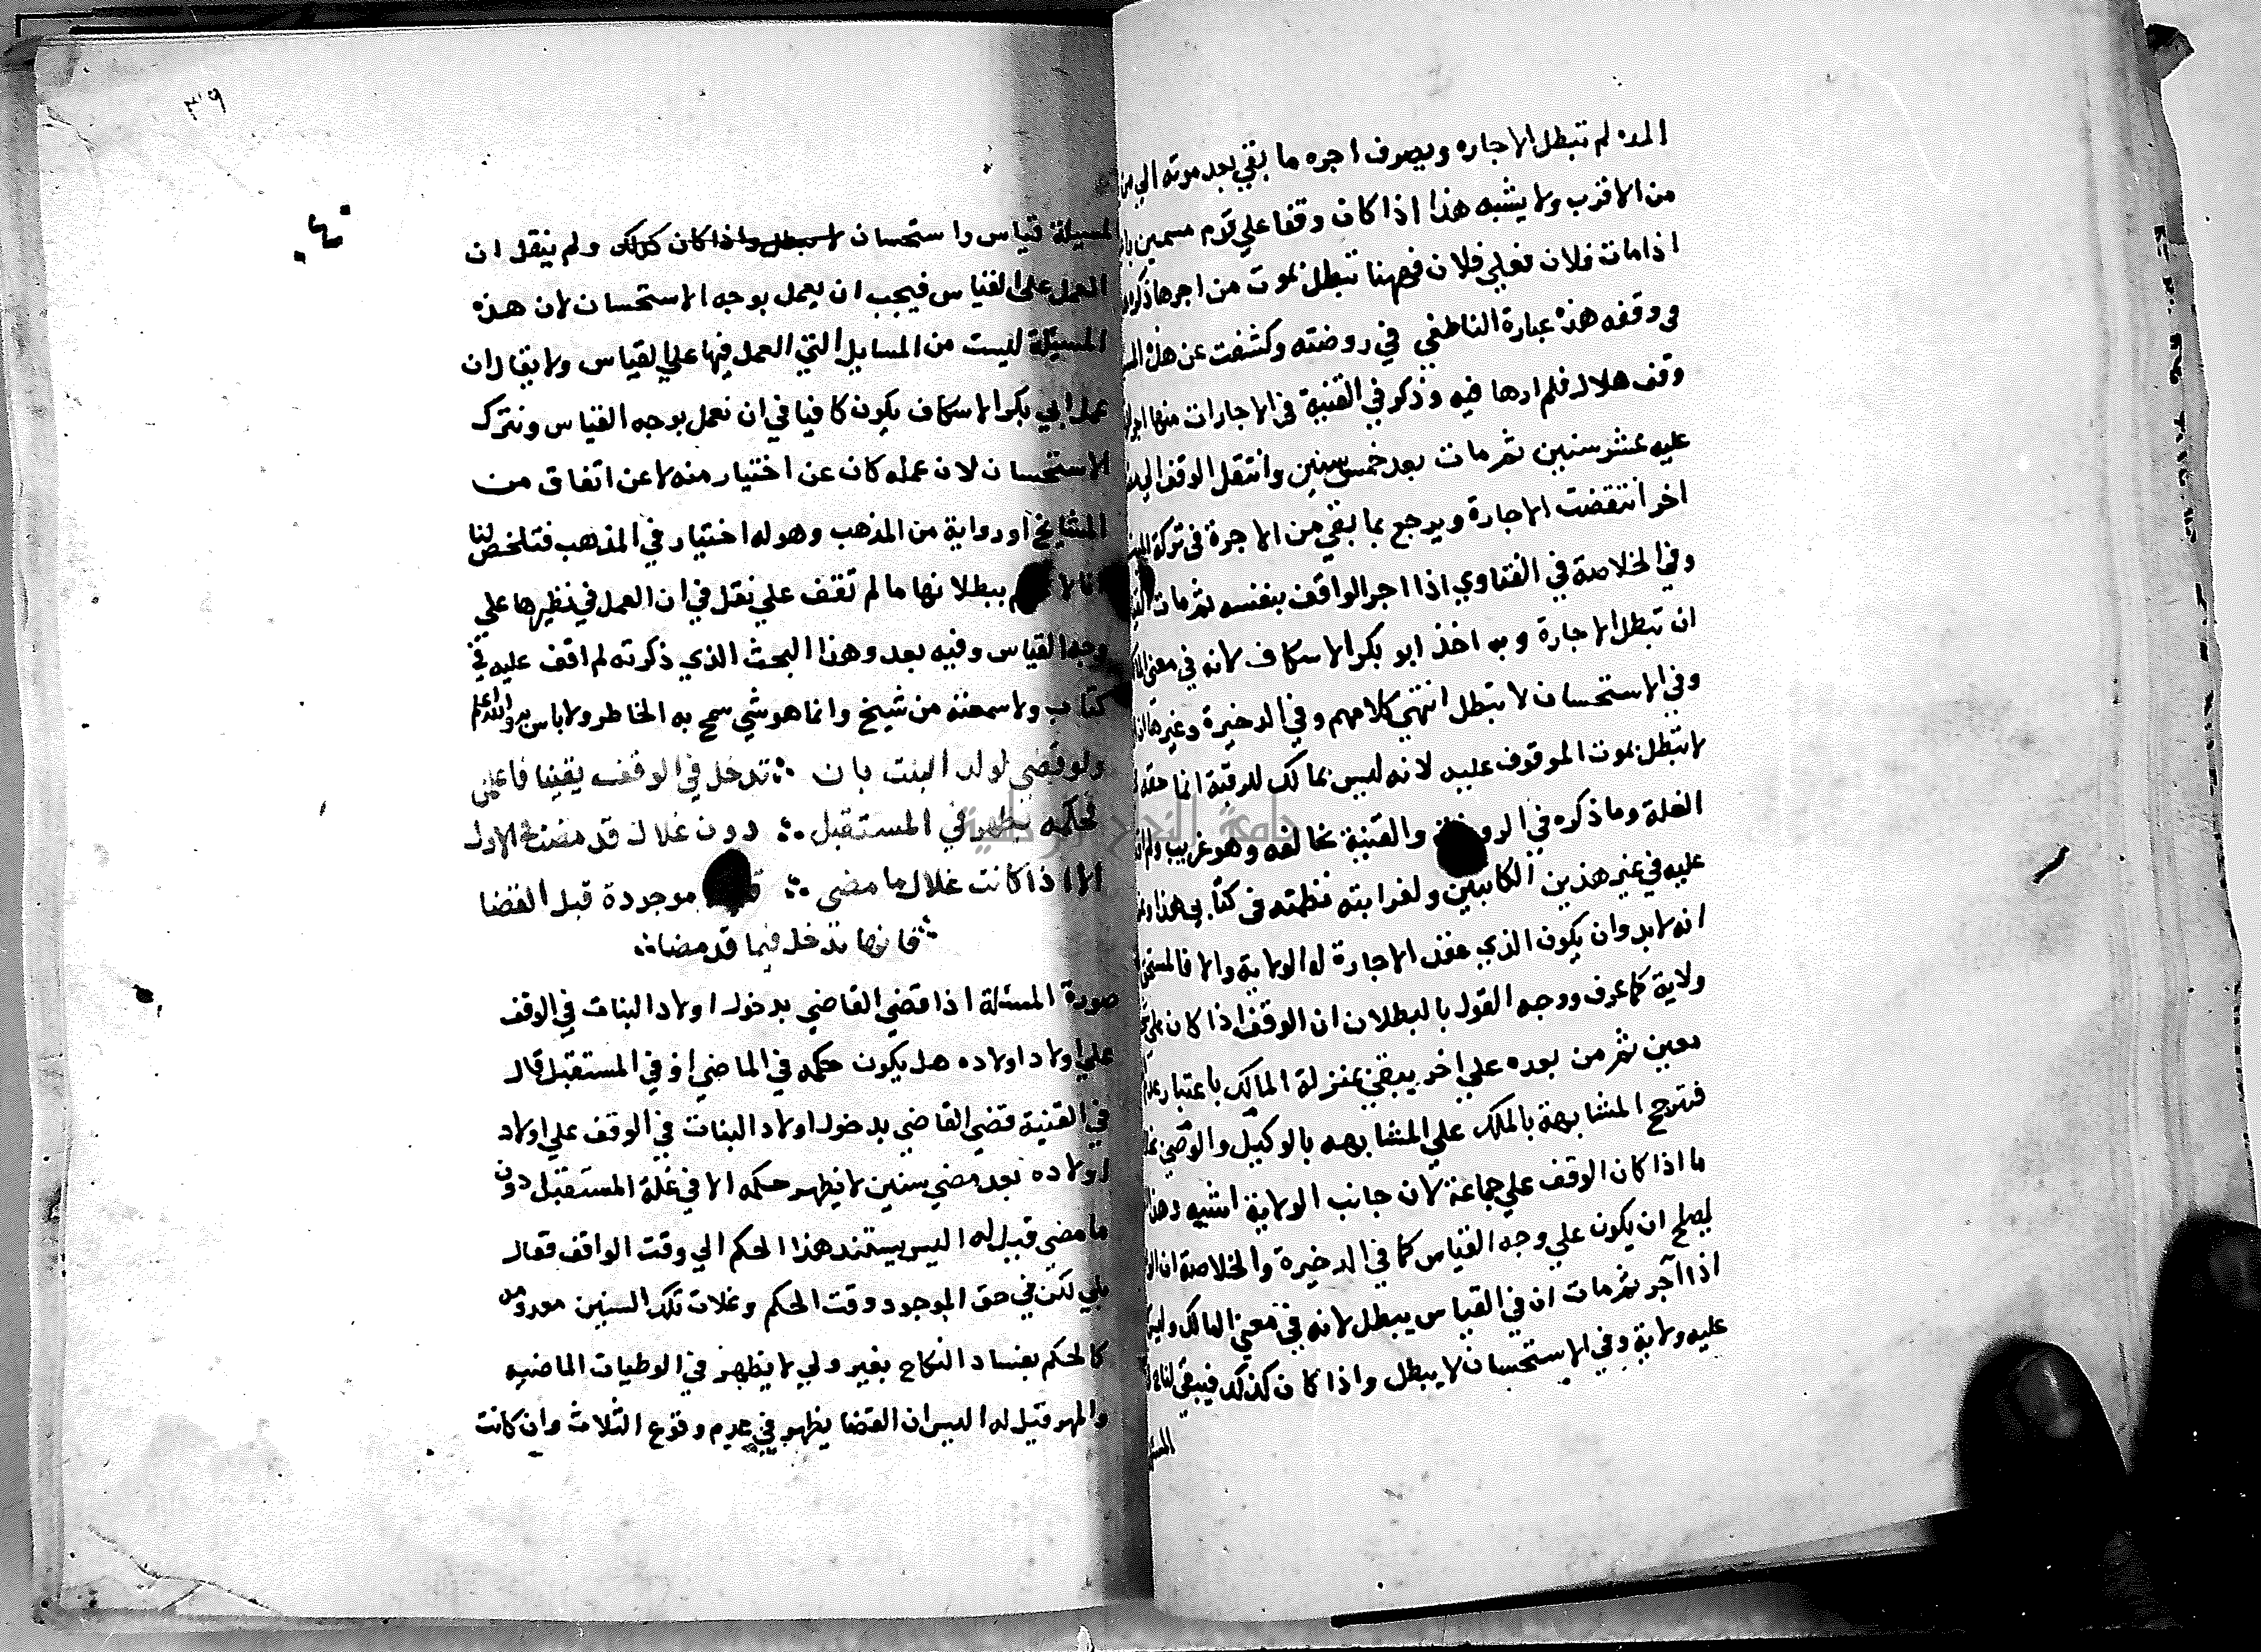 المده لم تبطل الاجاره ويصرف اجره ما بقي بعد موته الي من
من الاقرب ولا يشبه هذا اذا كان وقفا علي قوم مسمين
اذا مات فلان فعلي فلان فههنا تبطل بموت من اجرها ذكره
في وقفه هذه عبارة الناطفي في روضته وكشفت عن هذه
وقف هلال فلم ارها فيه وذكر في القنية في الاجارات منها اجر
عليه عشر سنين ثم مات بعد خمس سنين وانتقل الوقف الي
اخر انتقضت الاجارة ويرجع بما بقي من الاجرة في تركة
وفي الخلاصة في الفتاوي اذا اجر الواقف بنفسه ثم مات
ان تبطل الاجارة وبه اخذ ابو بكر الاسكاف لانه في معني
وفي الاستحسان لا تبطل انتهي كلامهم وفي الدخيرة وغيرها
لا تبطل بموت الموقوف عليه لانه ليس بمالك للرقبة انما حقه
الغلة وما ذكره في والقنية مخالفه وهو غريب ولم
عليه في غير هذين الكتابين ولغرابته نظمته في كتابي هذا
انه لا بد وان يكون الذي عقد الاجارة له الولاية والا
ولاية كما عرف ووجه القول بالبطلان ان الوقف اذا كان علي
معين ثم من بعده علي اخر يبقي بمنزلة المالك باعتبار
فترجح المشابهة بالملك علي المشابهه بالوكيل والوصي
ما اذا كان الوقف علي جماعة لان جانب الولاية اشبه وهذا
يصلح ان يكون علي وجه القياس كما في الدخيرة والخلاصة
اذا آجر ثم مات ان في القياس يبطل لانه في معني المالك
عليه ولاية وفي الاستحسان لا يبطل واذا كان كذلك فيبقي لنا
المسئلة
٣٩
المسيلة قياس واستحسان لا يبطل واذا كان كذلك ولم ينقل ان
العمل علي القياس فيجب ان يعمل بوجه الاستحسان لان هذه
المسيلة ليست من المسايل التي العمل فيها علي القياس ولا يقال ان
عمل ابي بكر الاسكاف يكون كافيا في ان نعمل بوجه القياس ونترك
الاستحسان لان عمله كان عن اختيار منه لا عن اتفاق من
المشايخ او رواية من المذهب وهو له اختيار في المذهب فتلخص لنا
ببطلانها ما لم تقف علي نقل في ان العمل في نظيرها علي
وجه القياس وفيه بعد وهذا البحث الذي ذكرته لم اقف عليه في
كتاب ولا سمعته من شيخ وانما هو شي سمح به الخاطر ولا باس به والله اعلم
ولو قضي لولد البنت بان ∴ تدخل في الوقف يقينا فاعلمي
فحكمه يظهر في المستقبل ∴ دون غلال قد مضت الاول
الا اذا كانت غلال ما مضي ∴ موجودة قبل القضا
∴ فانها تدخل فيما قد مضا ∴
صورة المسئلة اذا قضي القاضي بدخول اولاد البنات في الوقف
علي اولاد اولاده هل يكون حكمه في الماضي او في المستقبل قال
في القنية قضي القاضي بدخول اولاد البنات في الوقف علي اولاد
اولاده بعد مضي سنين لا يظهر حكمه الا في غلة المستقبل دون
ما مضي قيل له اليس يستند هذا الحكم الي وقت الواقف فقال
بلي لكن في حق الموجود وقت الحكم وغلات تلك السنين معدومه
كالحكم بفساد النكاح بغير ولي لا يظهر في الوطيات الماضيه
والمهر قيل له اليس ان القضا يظهر في عدم وقوع الثلاث وان كانت